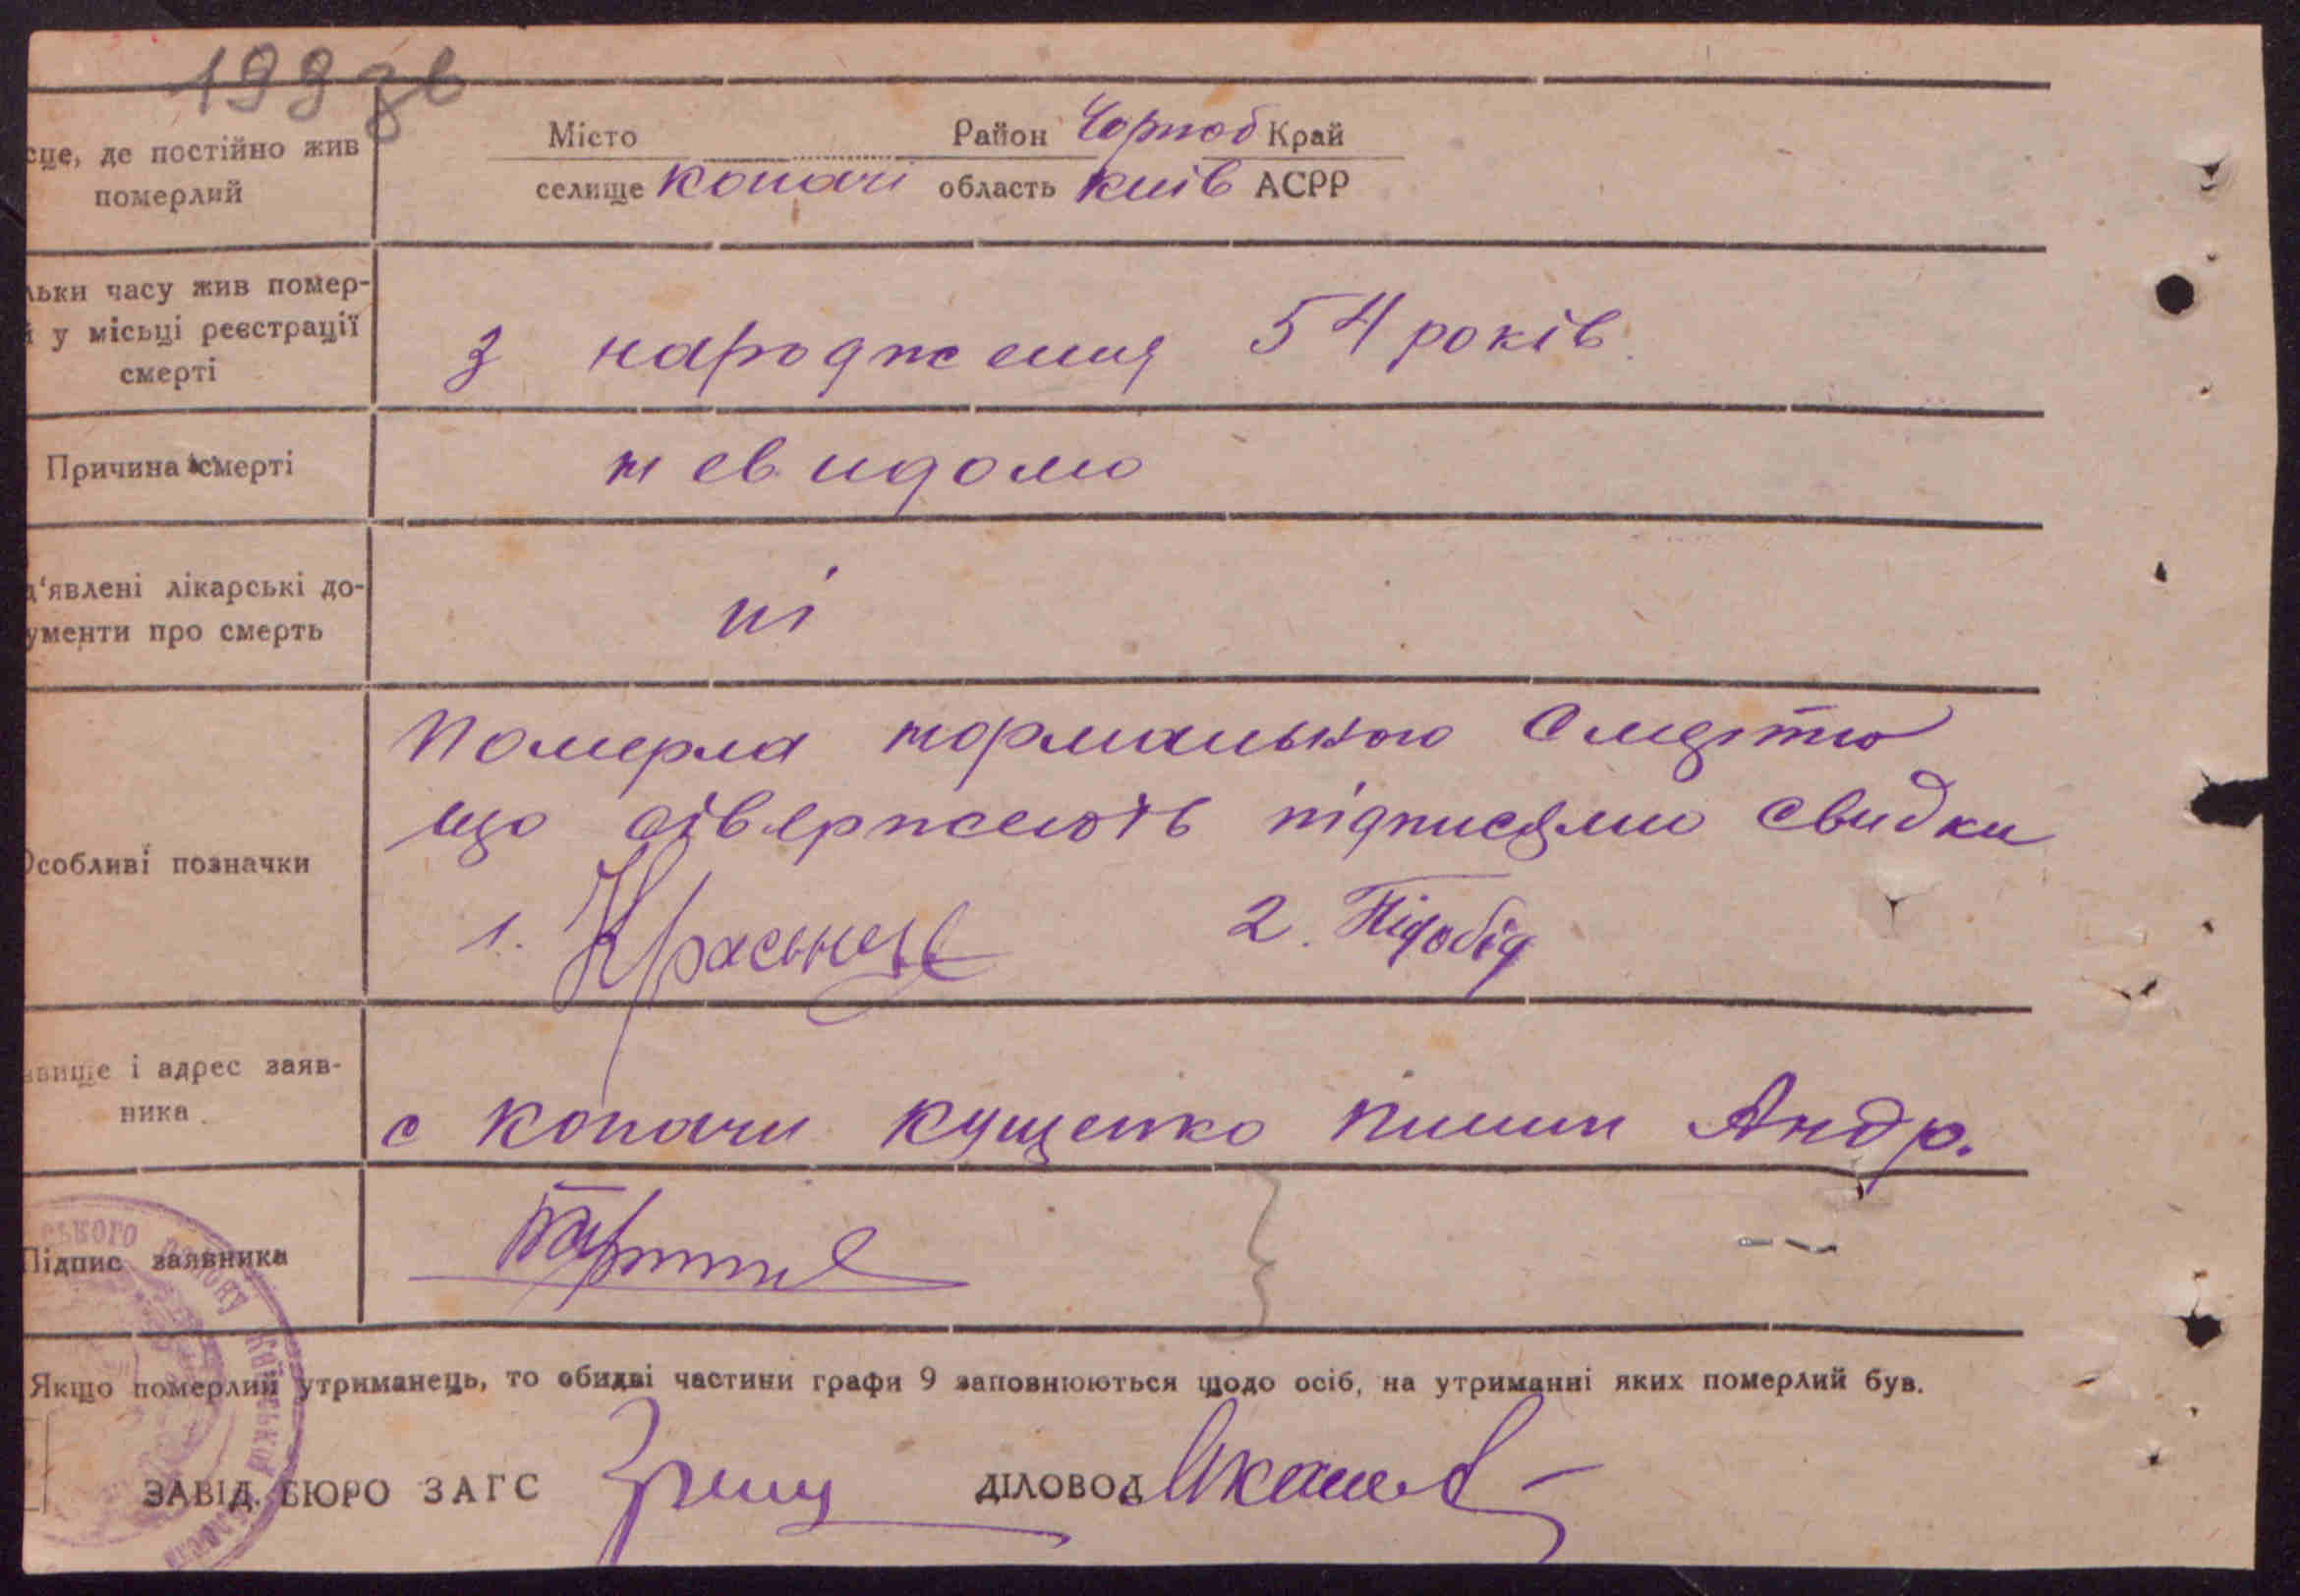 199 зв
сце, де постійно жив
померлий
Місто Район Чорноб Край
селище Копачі область Київ АСРР
льки часу жив помер-
й у місьці реєстрації
смерті
з народження 54 років
Причина смерті
невидомо
д'явлені лікарські до-
ументи про смерть
ні
Особливі позначки
Померла нормальною смертю
що підписями свидки
1. 2. Підобід
звище і адрес заяв-
ника
с Копачи Кущенко Пимин Андр.
Підпис заявника
ського району Київської
Якщо померлий утриманець, то обидві частини графи 9 заповнюються щодо осіб, на утриманні яких померлий був.
ЗАВІД. БЮРО ЗАГС ДІЛОВОД